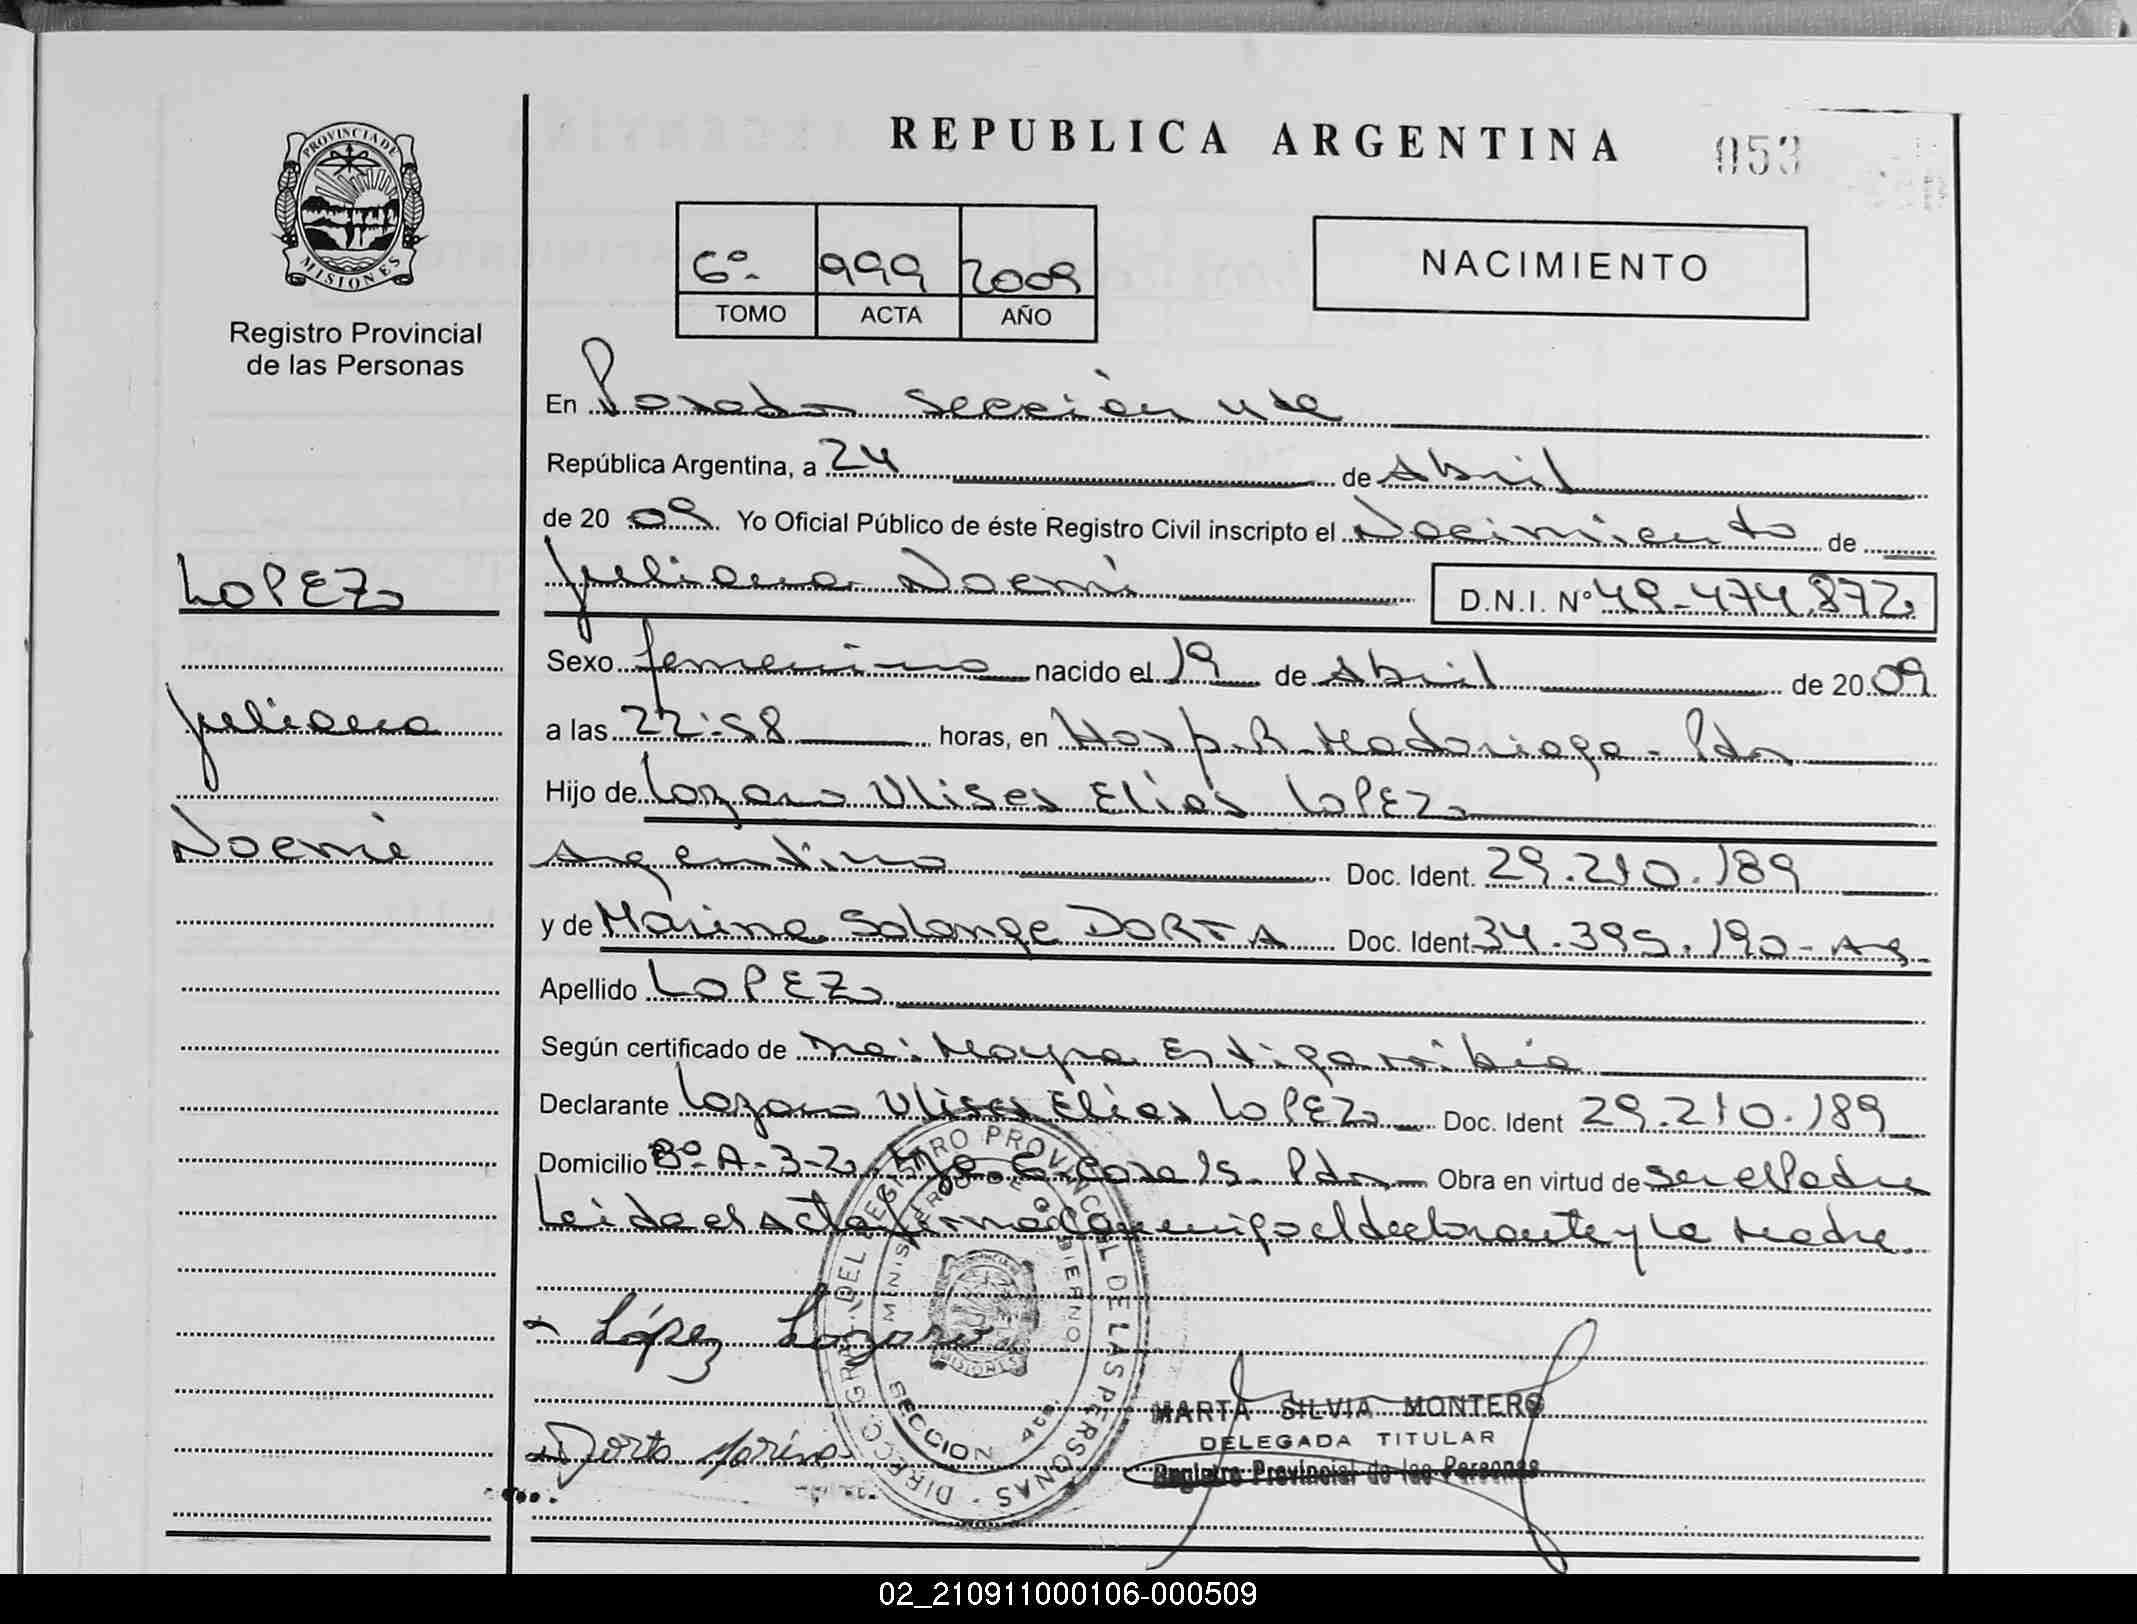 REPUBLICA ARGENTINA
053
PROVINCIA DE MISIONES
Registro Provincial
de las Personas
6º 999 2009
TOMO ACTA AÑO
NACIMIENTO
En Posadas Sección 4ta
República Argentina, a 24 de Abril
de 20 09 Yo Oficial Público de éste Registro Civil inscripto el Nacimiento de
LOPEZ
Juliana Noemí D.N.I. Nº 49-474.872
Sexo femenino nacido el 19 de Abril de 20 09
Juliana
a las 22:58 horas, en Hosp. R. Madariaga - Pdas
Hijo de Lozaro Ulises Elías LOPEZ
Noemí
Argentino Doc. Ident. 29.210.189
y de Marina Solange DORTA Doc. Ident 34.395.190 - Ag
Apellido LOPEZ
Según certificado de Mayra Estigarribia
Declarante Lozaro Ulises Elías LOPEZ Doc. Ident 29.210.189
Domicilio Bº A-3-2, Casa 15 Pdas Obra en virtud de ser el Padre
Leida el Acta firma conmigo el declarante y la Madre.
López Lozaro
DIRECC. GRAL. DEL REGISTRO PROVINCIAL DE LAS PERSONAS
MINISTERIO DE GOBIERNO
MISIONES
SECCION 4ta.
MARTA SILVIA MONTERO
DELEGADA TITULAR
Registro Provincial de las Personas
Dorta Marina
02_210911000106-000509